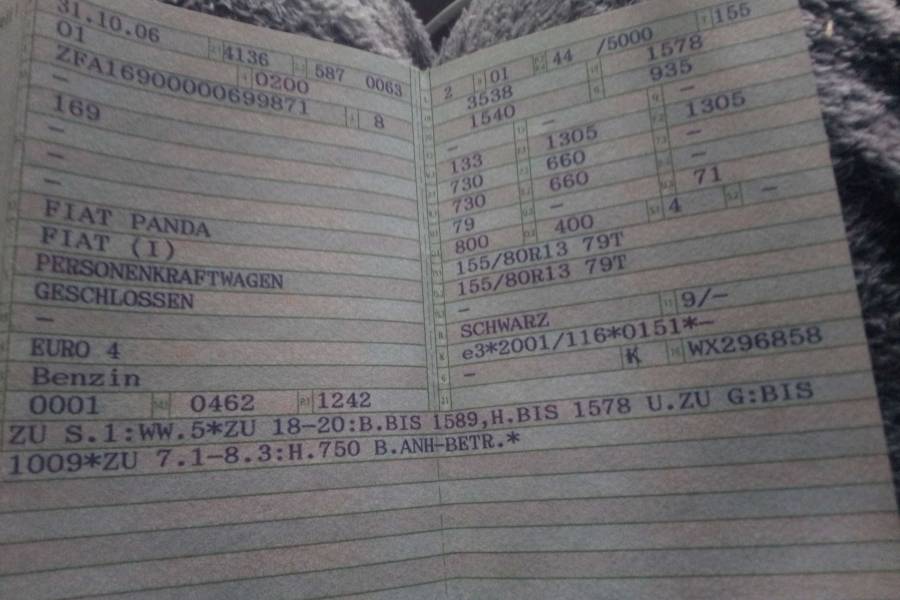 31.10.06 4136 587 0063
01 0200
ZFA16900000699871 8
–
169
–
–
–
FIAT PANDA
FIAT (I)
PERSONENKRAFTWAGEN
GESCHLOSSEN
–
EURO 4
Benzin
0001 0462 1242
2 01 44 /5000 155
3538 1578
1540 935
– – –
133 1305 1305
730 660 –
730 660 –
79 – 71
800 400 4 –
155/80R13 79T
155/80R13 79T
–
SCHWARZ 9/–
e3*2001/116*0151*–
– K WX296858
ZU S.1:WW.5*ZU 18-20:B.BIS 1589,H.BIS 1578 U.ZU G:BIS
1009*ZU 7.1-8.3:H.750 B.ANH-BETR.*